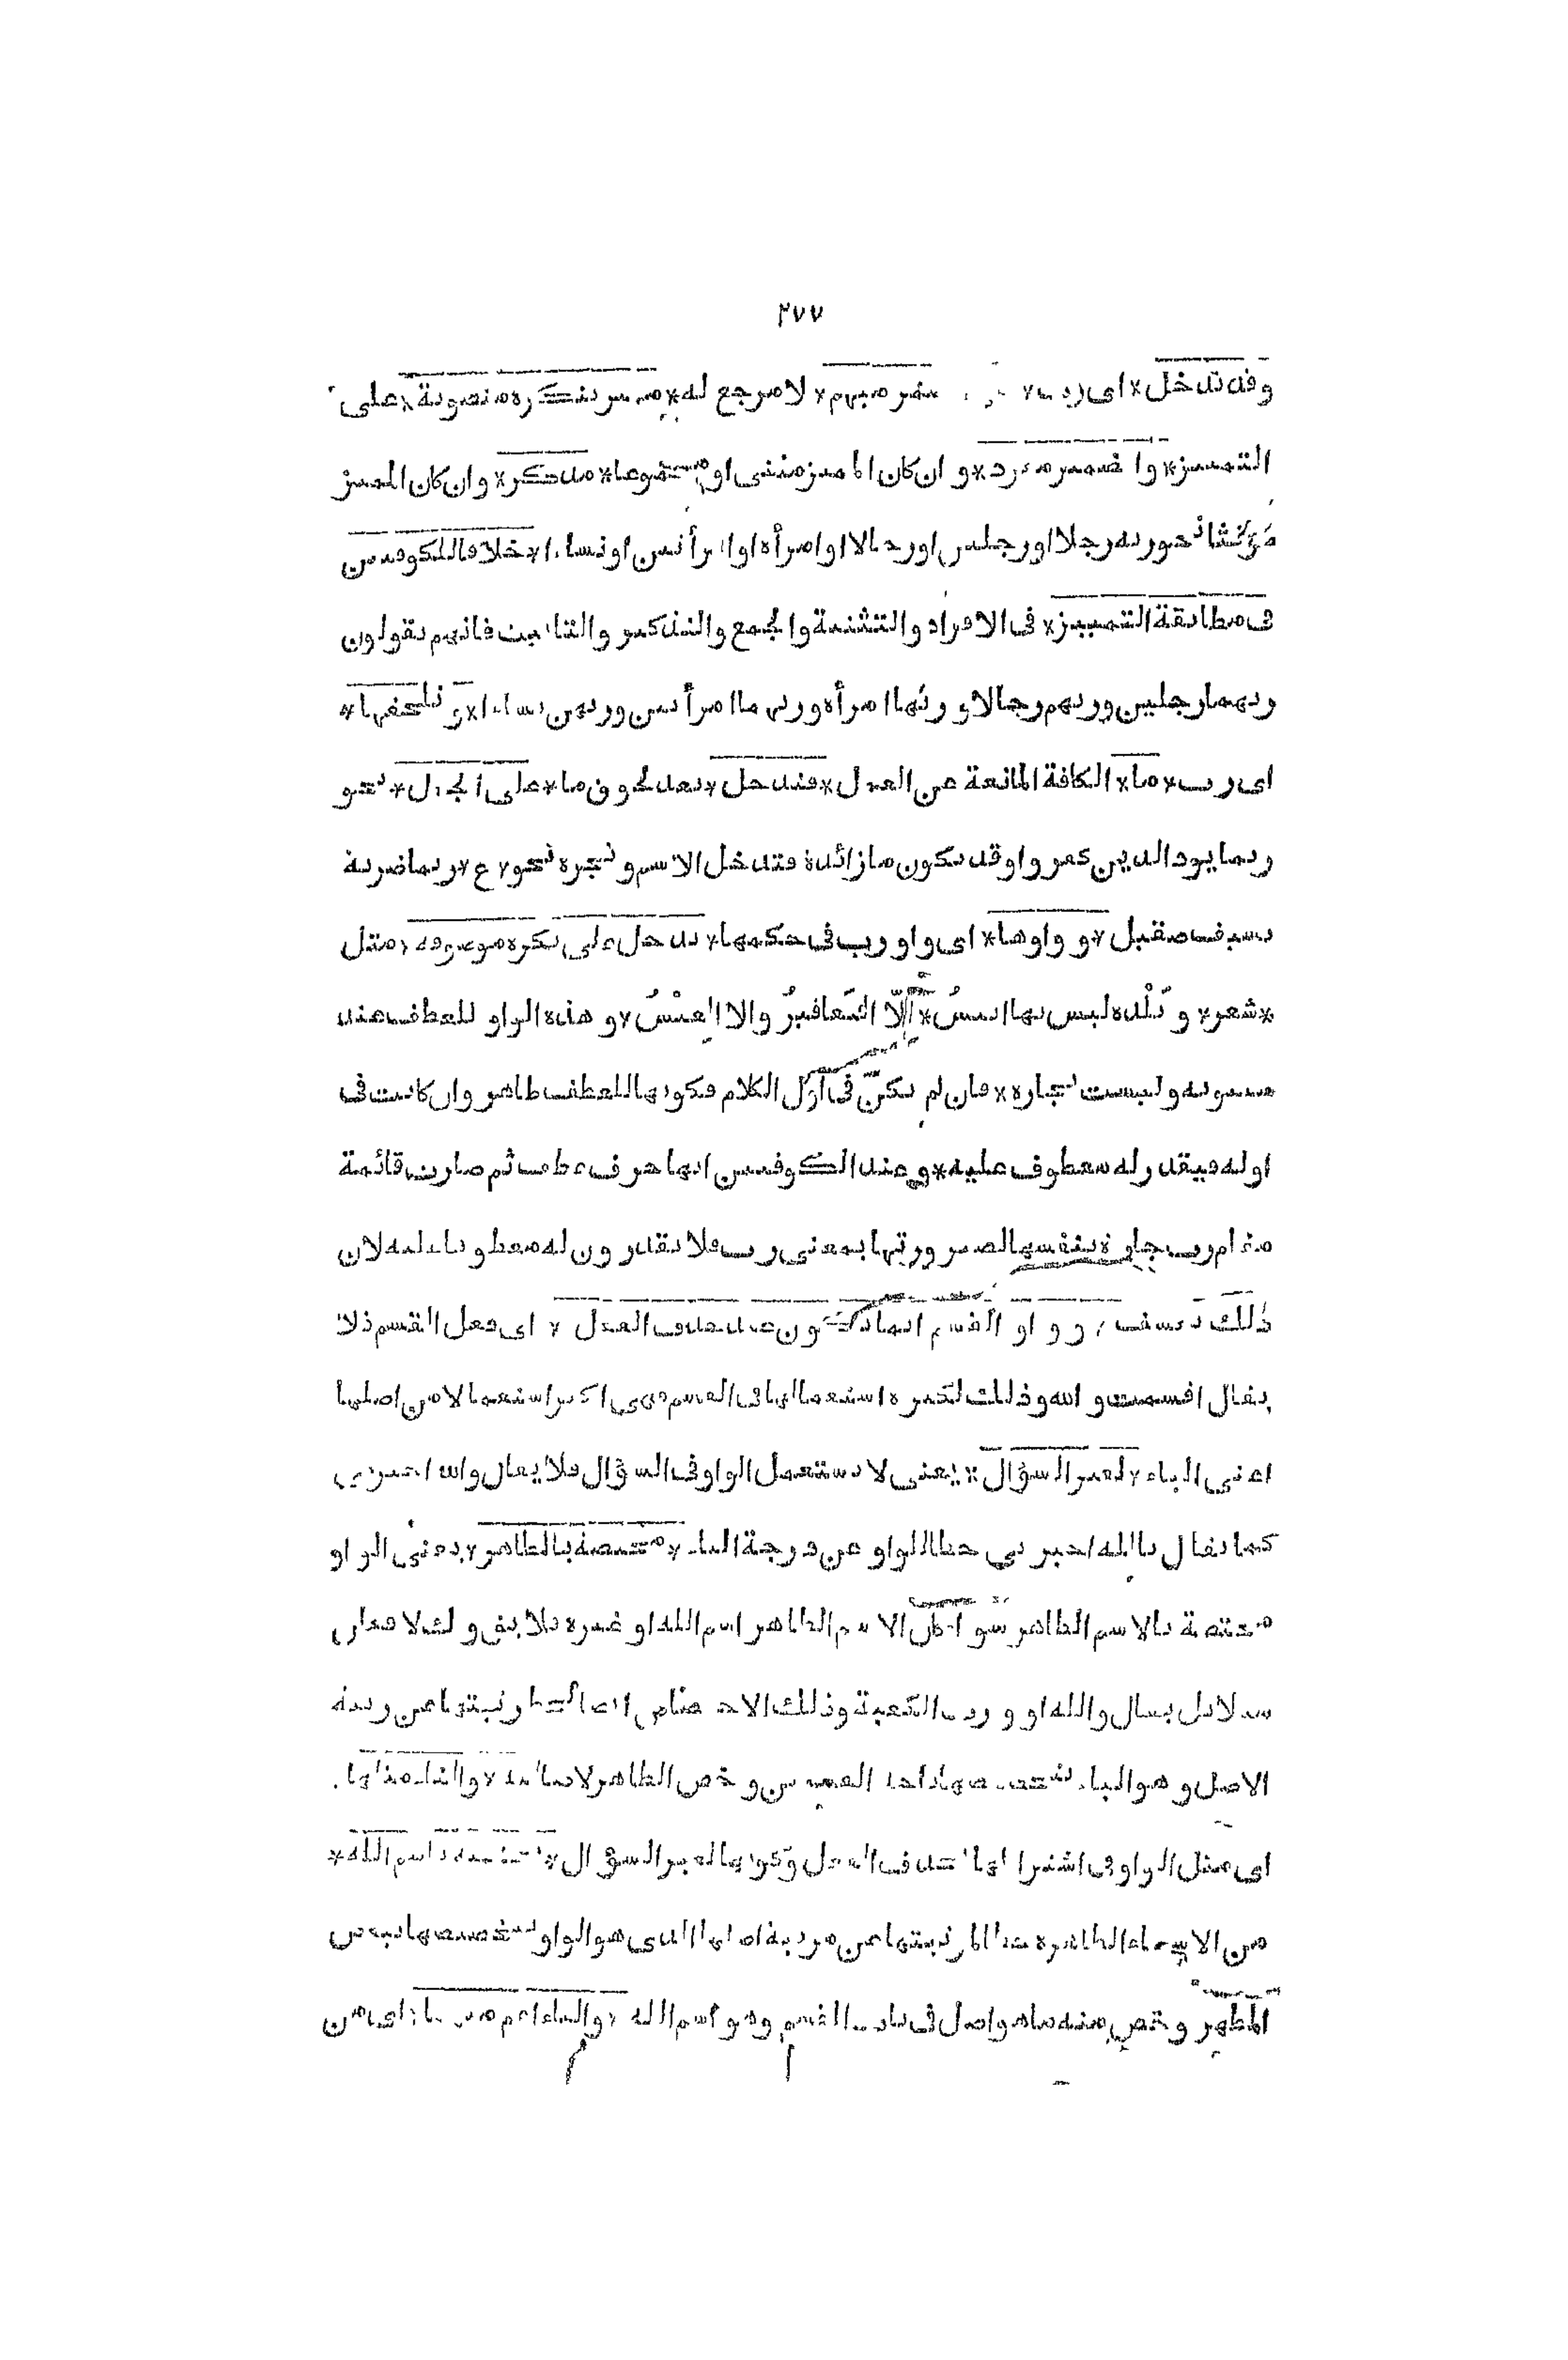 ٢٧٧
وقد تدخل * اى رب * مضمر مبهم * لا مرجع له * مميز بنكرة منصوبة * على
التمييز * والضمير مفرد * وان كان المميز مثنى او مجموعا * مذكر * وان كان المميز
مؤنثا نحو ربه رجلا او رجلين او رجالا او امرأة او امرأتين او نساء * خلافا للكوفيين
فى مطابقة التمييز * فى الافراد والتثنية والجمع والتذكير والتانيث فانهم يقولون
ربهما رجلين وربهم رجالا و ربها امرأة وربهما امرأتين وربهن نساء * وتلحقها *
اى رب * ما * الكافة المانعة عن العمل * فتدخل * بعد لحوق ما * على الجمل * نحو
ربما يود الذين كفروا وقد تكون ما زائدة فتدخل الاسم وتجره نحو * ع * ربما ضربة
بسيف صقيل * و واوها * اى واو رب فى حكمها * تدخل على نكرة موصوفة * مثل
* شعر * و بَلْدة ليس بها انيسُ * اِلّا اليَعافيرُ والا العِيْسُ * وهذه الواو للعطف عند
سيبويه وليست بجارة * فان لم تكن فى اول الكلام فكونها للعطف ظاهر وان كانت فى
اوله فيقدر له معطوف عليه * وعند الكوفيين انها حرف عطف ثم صارت قائمة
مقام رب جارة بنفسها لصيرورتها بمعنى رب فلا يقدرون له معطوفا عليه لان
ذلك تعسف * و واو القسم انما تكون عند حذف الفعل * اى فعل القسم فلا
يقال اقسمت والله وذلك لكثرة استعمالها فى القسم فهى اكثر استعمالا من اصلها
اعنى الباء * لغير السؤال * يعنى لا تستعمل الواو فى السؤال فلا يقال والله اخبرنى
كما يقال بالله اخبرنى حطا للواو عن درجة الباء * مختصة بالظاهر * يعنى الواو
مختصة بالاسم الظاهر سواء كان الاسم الظاهر اسم الله او غيره فلا يقولك لافعلن
بل يقال والله او ورب الكعبة وذلك الاختصاص لحط رتبتها عن رتبة
الاصل وهو الباء بتخصيصها باحد القسمين وخص الظاهر لاصالته * والتاء مثلها
اى مثل الواو فى اشتراطها بحذف الفعل وكونها لغير السؤال * مختصة باسم الله *
من الاسماء الظاهرة حطا لمرتبتها عن مرتبة اصلها الذى هو الواو بتخصيصها ببعض
المظهر وخص منه ما هو اصل فى باب القسم وهو اسم الله * والباء اعم منهما * اى من